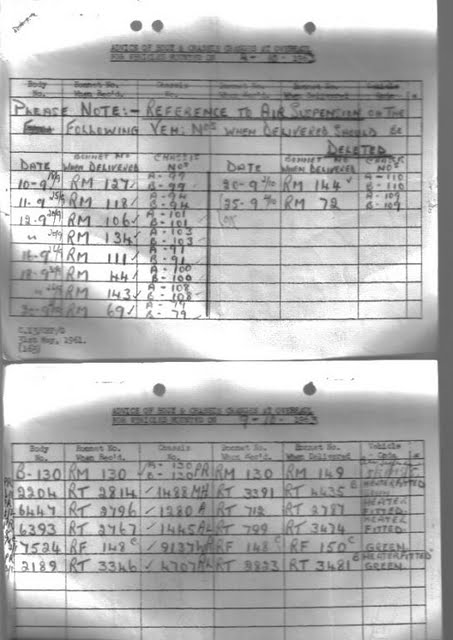 ADVICE OF BODY & CHASSIS CHANGES AT OVERHAUL
FOR VEHICLES MOUNTED ON 4-10-1963
Body No. Bonnet No. When Rec'd. Chassis No. Bonnet No. When Delivered Vehicle
PLEASE NOTE:- REFERENCE TO AIR SUSPENSION ON THE
FOLLOWING VEH: NOS WHEN DELIVERED SHOULD BE
DELETED
DATE BONNET NO WHEN DELIVERED CHASSIS NOS DATE BONNET NO WHEN DELIVERED CHASSIS NOS
10-9 RM 127 A-99 B-99 20-9 RM 144 A-110 B-110
11-9 RM 118 A-94 B-94 25-9 RM 72 A-109 B-109
12-9 RM 106 A-101 B-101
" RM 134 A-103 B-103
RM 111 A-91 B-91
18-9 RM 44 A-100 B-100
" RM 143 A-108 B-108
RM 69 A-79 B-79
31st May, 1961.
(169)
ADVICE OF BODY & CHASSIS CHANGES AT OVERHAUL
FOR VEHICLES MOUNTED ON 9-10-1963
Body No. Bonnet No. When Rec'd. Chassis No. Bonnet No. When Delivered Vehicle
B-130 RM 130 A-130 B-130 PR RM 130 RM 149
2204 RT 2814 1488 MH RT 3391 RT 4435 HEATER FITTED
6447 RT 2796 1280 A RT 712 RT 2787 HEATER FITTED
6393 RT 2767 1445 AL RT 799 RT 3474 HEATER FITTED
7524 RF 148 C 9137 RF 148 C RF 150 C GREEN
2189 RT 3346 4707 RT 2823 RT 3481 HEATER FITTED GREEN